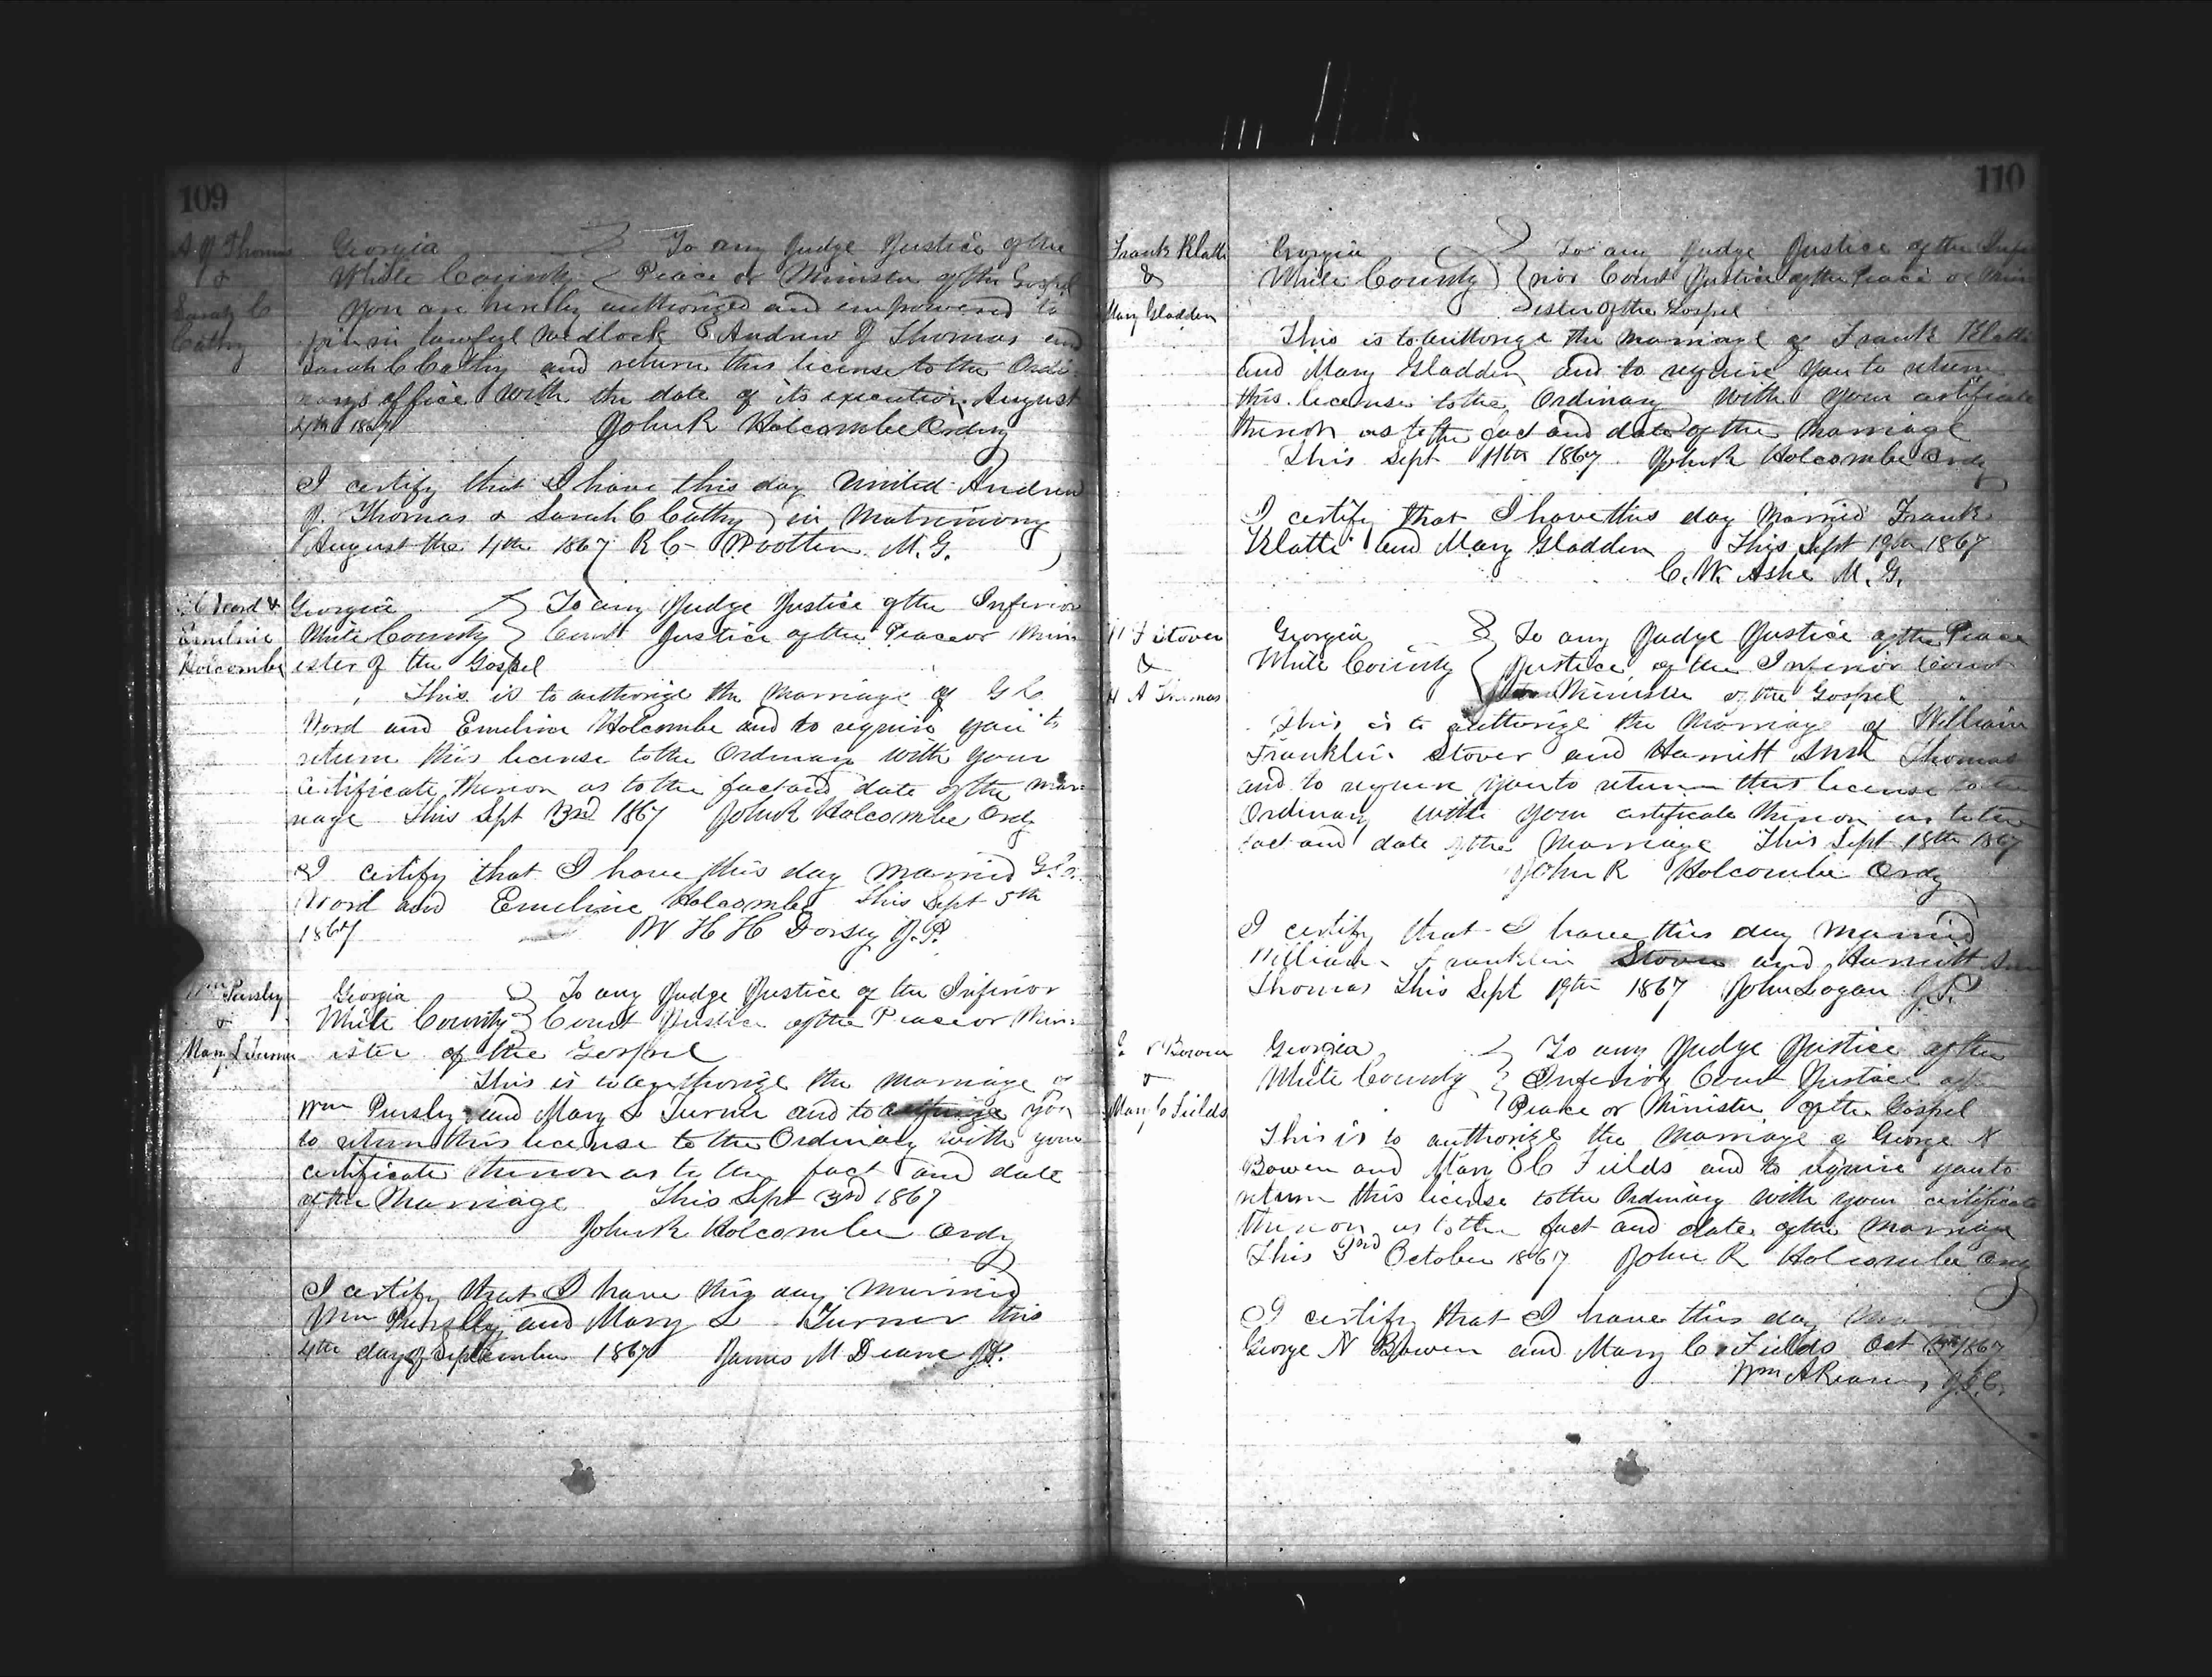 109
A J Thomas
&
Sarah C
Cathy
Georgia To any Judge Justice of the
White County Peace or Minister of the Gospel
You are hereby authorized and empowered to
join in lawful wedlock Andrew J Thomas and
Sarah C Cathy and return this license to the Ordi
narys office with the date of its execution August
4th 1867 John R Holcombe Ordny
I certify that I have this day united Andrew
J. Thomas & Sarah C Cathy in Matrimony
August the 4th 1867 R C Wootten M. G.
Word &
Emeline
Holcombe
Georgia To any Judge Justice of the Inferior
White County Court Justice of the Peace or Min
ister of the Gospel
This is to authorize the marriage of G C
Word and Emeline Holcombe and to require you to
return this license to the Ordinary with your
certificate thereon as to the fact and date of the mar
riage This Sept 3rd 1867 John R Holcombe Ordy
I certify that I have this day married G C
Word and Emeline Holcombe this Sept 5th
1867 W H H Dorsey J. P.
Wm Pursley
&
Mary L Turner
Georgia To any Judge Justice of the Inferior
White County Court Justice of the Peace or Min
ister of the Gospel
This is to authorize the marriage of
Wm Pursley and Mary L Turner and to you
to return this license to the Ordinary with your
certificate thereon as to the fact and date
of the Marriage This Sept 3rd 1867
John R Holcombe Ordy
I certify that I have this day married
Wm Pursley and Mary L Turner this
4th day of September 1867 James M Deane J.P.
110
Frank Klatti
&
Mary Gladden
Georgia To any Judge Justice of the Infe
White County rior Court Justice of the Peace or Min
ister of the Gospel
This is to authorize the marriage of Frank Klatti
and Mary Gladden and to require you to return
this license to the Ordinary with your certificate
thereon as to the fact and date of the marriage
This Sept 11th 1867 John R Holcombe Ordy
I certify that I have this day married Frank
Klatti and Mary Gladden This Sept 19th 1867
C. W. Ashe M. G.
W F Stover
&
H A Thomas
Georgia To any Judge Justice of the Peace
White County Justice of the Inferior Court
Minister of the Gospel
This is to authorize the marriage of William
Franklin Stover and Harriett Ann Thomas
and to require you to return this license to the
Ordinary with your certificate thereon as to the
fact and date of the Marriage This Sept 18th 1867
John R Holcombe Ordy
I certify that I have this day married
William Franklin Stover and Harriett Ann
Thomas This Sept 19th 1867 John Logan J. P.
G N Bowen
&
Mary C Fields
Georgia To any Judge Justice of the
White County Inferior Court Justice of
Peace or Minister of the Gospel
This is to authorize the marriage of George N
Bowen and Mary C Fields and to require you to
return this license to the Ordinary with your certificate
thereon as to the fact and date of the Marriage
This 3rd October 1867 John R Holcombe Ordy
I certify that I have this day
George N Bowen and Mary C Fields Oct 1867
Wm A J.I.C.